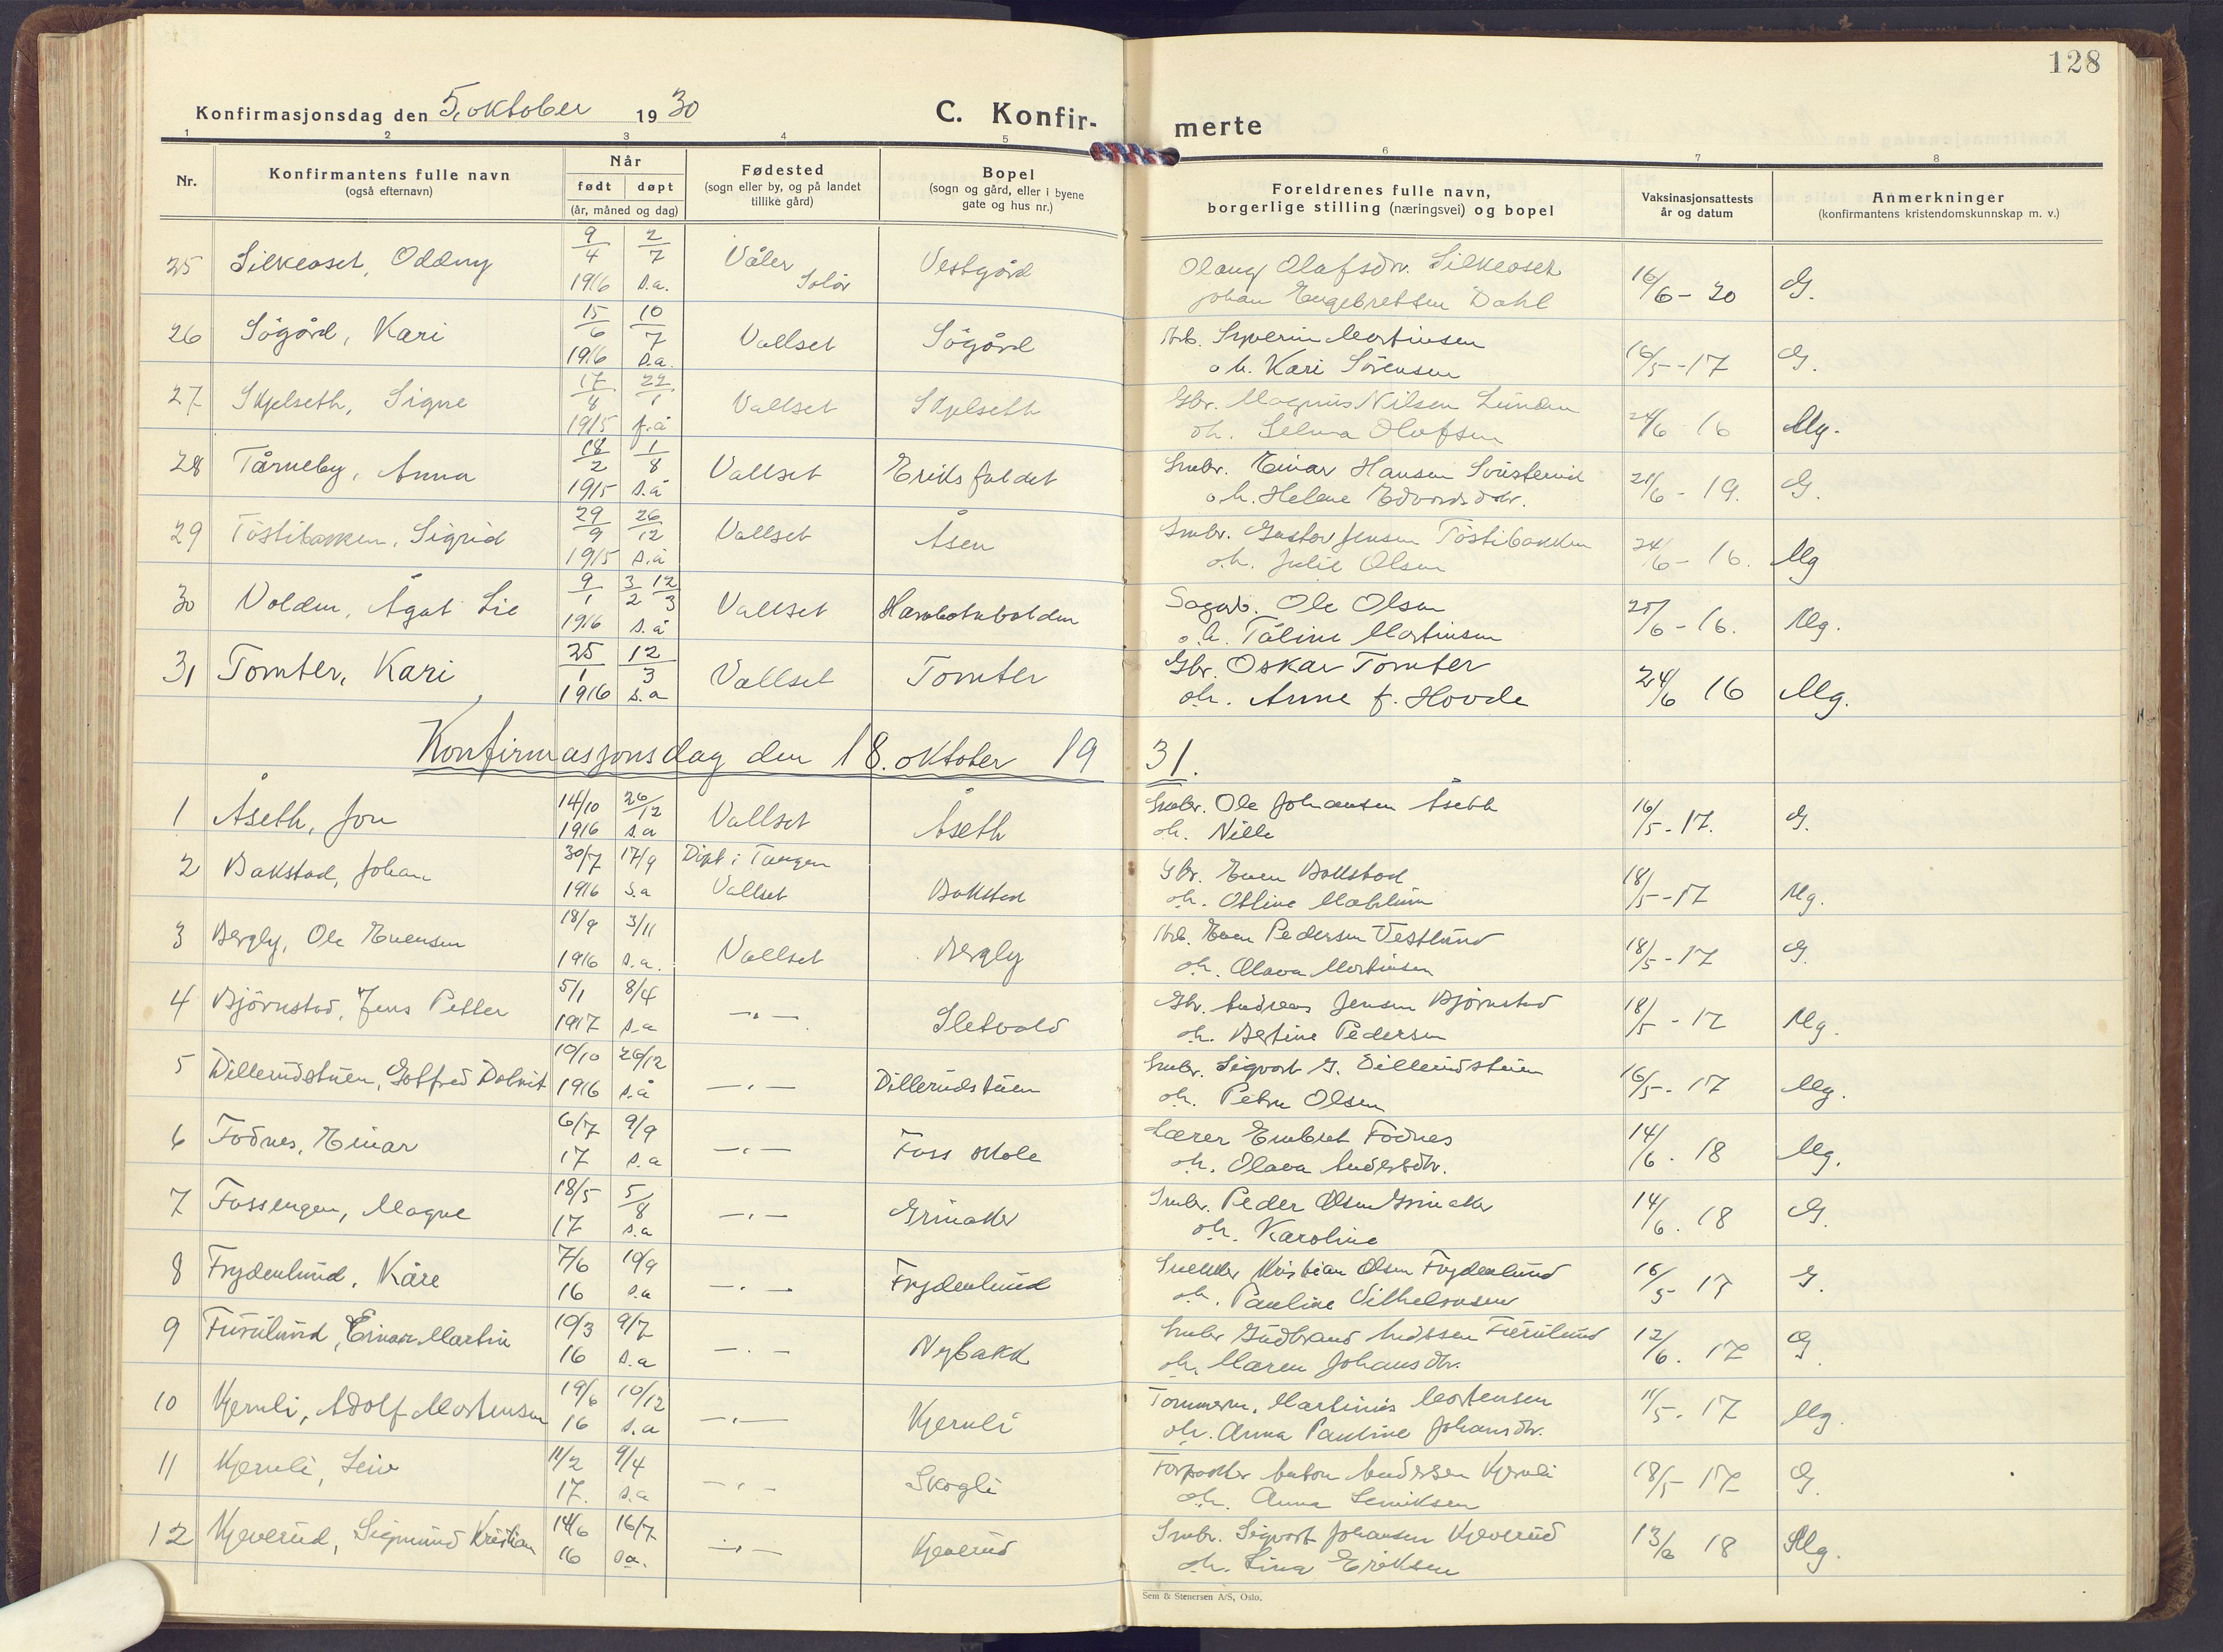 128
Konfirmasjonsdag den 5. oktober 1930
C. Konfir-
merte
1 2 3 4 5 6 7 8
Nr.
Konfirmantens fulle navn
(også efternavn)
Når
født døpt
(år, måned og dag)
Fødested
(sogn eller by, og på landet
tillike gård)
Bopel
(sogn og gård, eller i byene
gate og hus nr.)
Foreldrenes fulle navn,
borgerlige stilling (næringsvei) og bopel
Vaksinasjonsattests
år og datum
Anmerkninger
(konfirmantens kristendomskunnskap m. v.)
25 Silkeoset, Oddny 9/4 1916 2/7 s.a. Våler Solør Vestgård Olaug Olafsdtr. Silkeoset 16/6 - 20 G.
Johan Engebretsen Dahl
26 Sögård, Kari 15/6 1916 10/7 s.a. Vallset Sögård Arb. Syverin Martinsen 16/5 - 17 G.
o.h. Kari Sörensen
27 Skjelseth, Signe 17/8 1915 22/1 f.å Vallset Skjelseth Gbr. Magnus Nilsen Lunden 24/6 16 Mg.
oh. Selma Olafsen
28 Tårneby, Anna 18/2 1915 1/8 s.å Vallset Eriksfaldet Smbr. Einar Hansen 21/6 - 19. G.
o.h. Helene Edvardsdtr.
29 Töstibakken, Sigrid 29/9 1915 26/12 s.å Vallset Åsen Smbr. Gustav Jensen Töstibakken 24/6 - 16. Mg
o.h. Julie Olsen
30 Volden, Ågot Lie 9/1 1916 3/2 12/3 s.å Vallset Sagarb. Ole Olsen 25/6 - 16. Mg.
o.h. Tåline Martinsen
31 Tomter, Kari 25/1 1916 12/3 s.a Vallset Tomter Gbr. Oskar Tomter 24/6 16 Mg.
oh. Anne f. Hovde
Konfirmasjonsdag den 18. oktober 1931.
1 Åseth, Jon 14/10 1916 26/12 s.a Vallset Åseth Smbr. Ole Johansen Åseth 16/5 - 17. G.
oh. Nille
2 Bakstad, Johan 30/7 1916 17/9 s.a Döpt i Tangen Vallset Bakstad Gbr. Even Bakstad 18/5 - 17 Mg.
oh. Otline
3 Bergly, Ole Evensen 18/9 1916 3/11 s.a. Vallset Bergly Arb. Even Pedersen Vestlund 18/5 - 17 G.
oh. Olava Martinsen
4 Björnstad, Jens Petter 5/1 1917 8/4 s.a —"— Sletvold Gbr. Andreas Jensen Björnstad 18/5 - 17 Mg.
oh. Bertine Pedersen
5 Dillerudstuen, Gotfred Dolvit 10/10 1916 26/12 s.å —"— Dillerudstuen Smbr. Sigvart G. Dillerudstuen 16/5 - 17 Mg.
oh. Petra Olsen
6 Fodnes, Einar 6/7 17 9/9 s.a —"— Foss skole Lærer Embret Fodnes 14/6 . 18 Mg.
oh. Olava Andersdtr.
7 Fossengen, Magne 18/5 17 5/8 s.a —"— Grinaker Smbr. Peder Olsen Grinaker 14/6 . 18 G.
oh. Karoline
8 Frydenlund, Kåre 7/6 16 10/9 s.a —"— Frydenlund Snekker Kristian Olsen Frydenlund 16/5 17 G.
oh. Pauline Vilhelmsen
9 Furulund, Einar Martin 10/3 16 9/7 s.a —"— Nybakk Smbr Gudbrand Andersen Furulund 12/6 . 17 G.
oh. Maren Johansdtr.
10 Kjernli, Adolf Mortensen 19/6 16 10/12 s.a —"— Kjernli Tømmerm. Martinius Mortensen 11/5 . 17 Mg.
oh. Anna Pauline Johansdtr.
11 Kjernli, Leiv 11/2 17. 9/4 s.a —"— Skogli Forpakter Anton Andersen Kjernli 18/5 - 17 G.
oh. Anna
12 Kjeverud, Sigmund Kristian 14/6 16 16/7 s.a. —"— Kjeverud Smbr. Sigvart Johansen Kjeverud 13/6 18 Mg.
oh. Lina Eriksen
Sem & Stenersen A/S, Oslo.